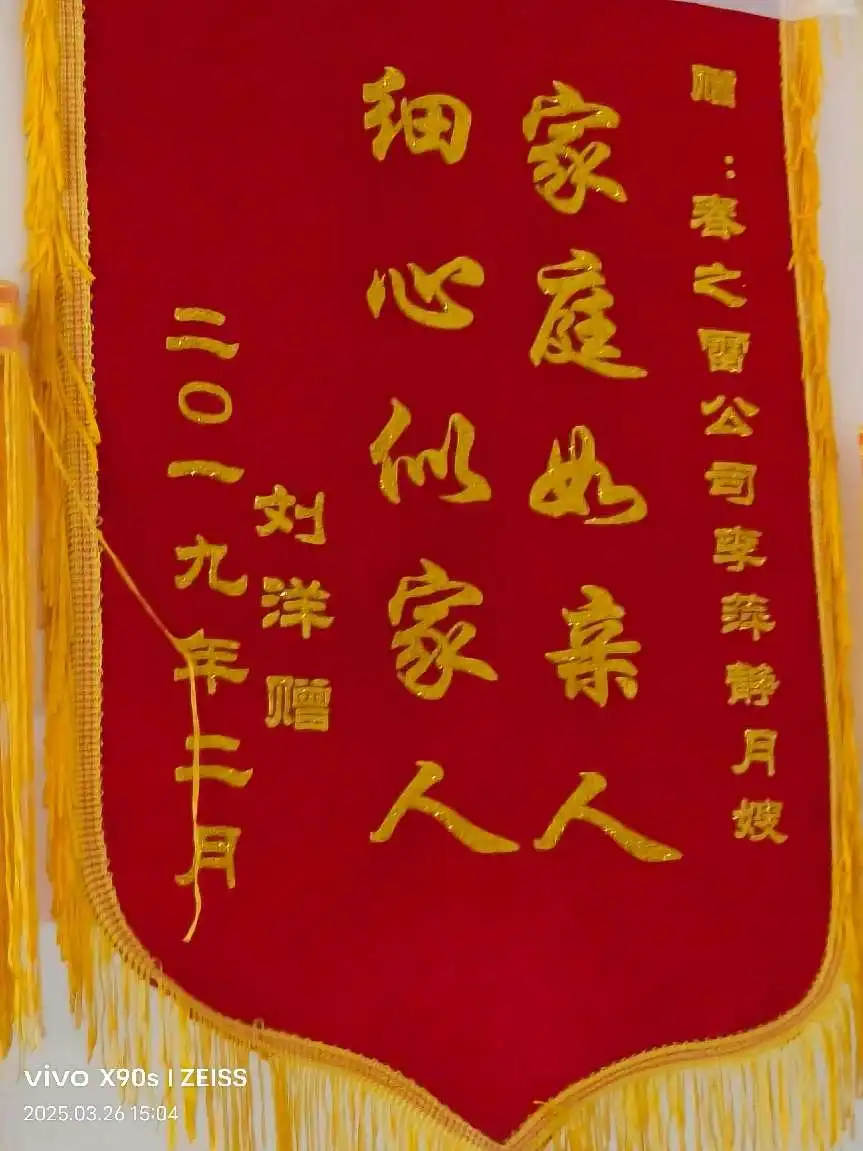 赠：春之雷公司李萍静月嫂
家庭如亲人
细心似家人
刘洋赠
二〇一九年二月
vivo X90s | ZEISS
2025.03.26 15:04